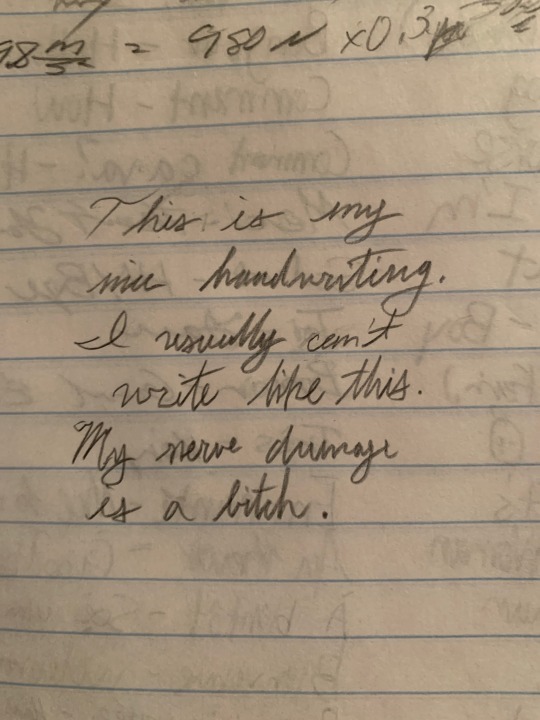 98 m/s² = 980 N x0.3
This is my
nice handwriting.
I usually can't
write like this.
My nerve damage
is a bitch.